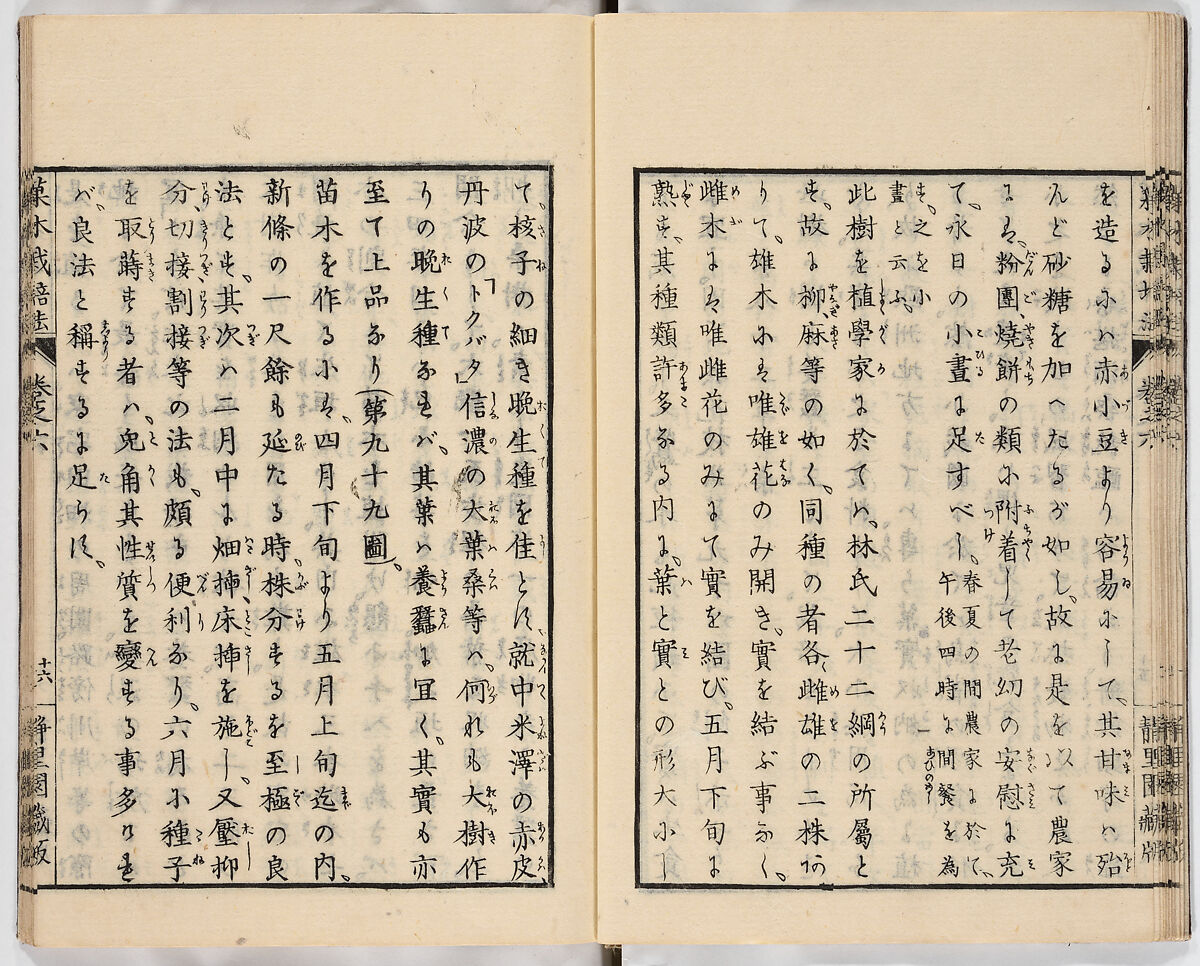 を造るにハ赤小豆より容易にして、其甘味ハ殆
んど砂糖を加へたるが如し、故に是を以て農家
にて、粉團、燒餅の類に附着して老幼の安慰に充
て、永日の小晝に足すべし、春夏の間農家に於て、午後四時に間餐を為
す、之を小晝と云ふ、
此樹を植學家に於てハ、林氏二十二綱の所屬と
す、故に柳、麻等の如く、同種の者各雌雄の二株あ
りて、雄木にハ唯雄花のみ開き、實を結ぶ事なく、
雌木にハ唯雌花のみにて實を結び、五月下旬に
熟す、其種類許多なる内に、葉と實との形大にし
て、核子の細き晩生種を佳とす、就中米澤の赤皮、
丹波の「トクバタ」信濃の大葉桑等ハ、何れも大樹作
りの晩生種なれバ、其葉ハ養蠶に宜く、其實も亦
至て上品なり（第九十九圖）。
苗木を作るにハ、四月下旬より五月上旬迄の内、
新條の一尺餘も延たる時、株分するを至極の良
法とす、其次ハ二月中に畑揷、床揷を施し、又壓抑
分、切接、割接等の法も、頗る便利なり、六月に種子
を取蒔する者ハ、兎角其性質を變ずる事多けれ
バ、良法と稱するに足らず、
菓木栽培法
卷之六
十六
靜里園藏版